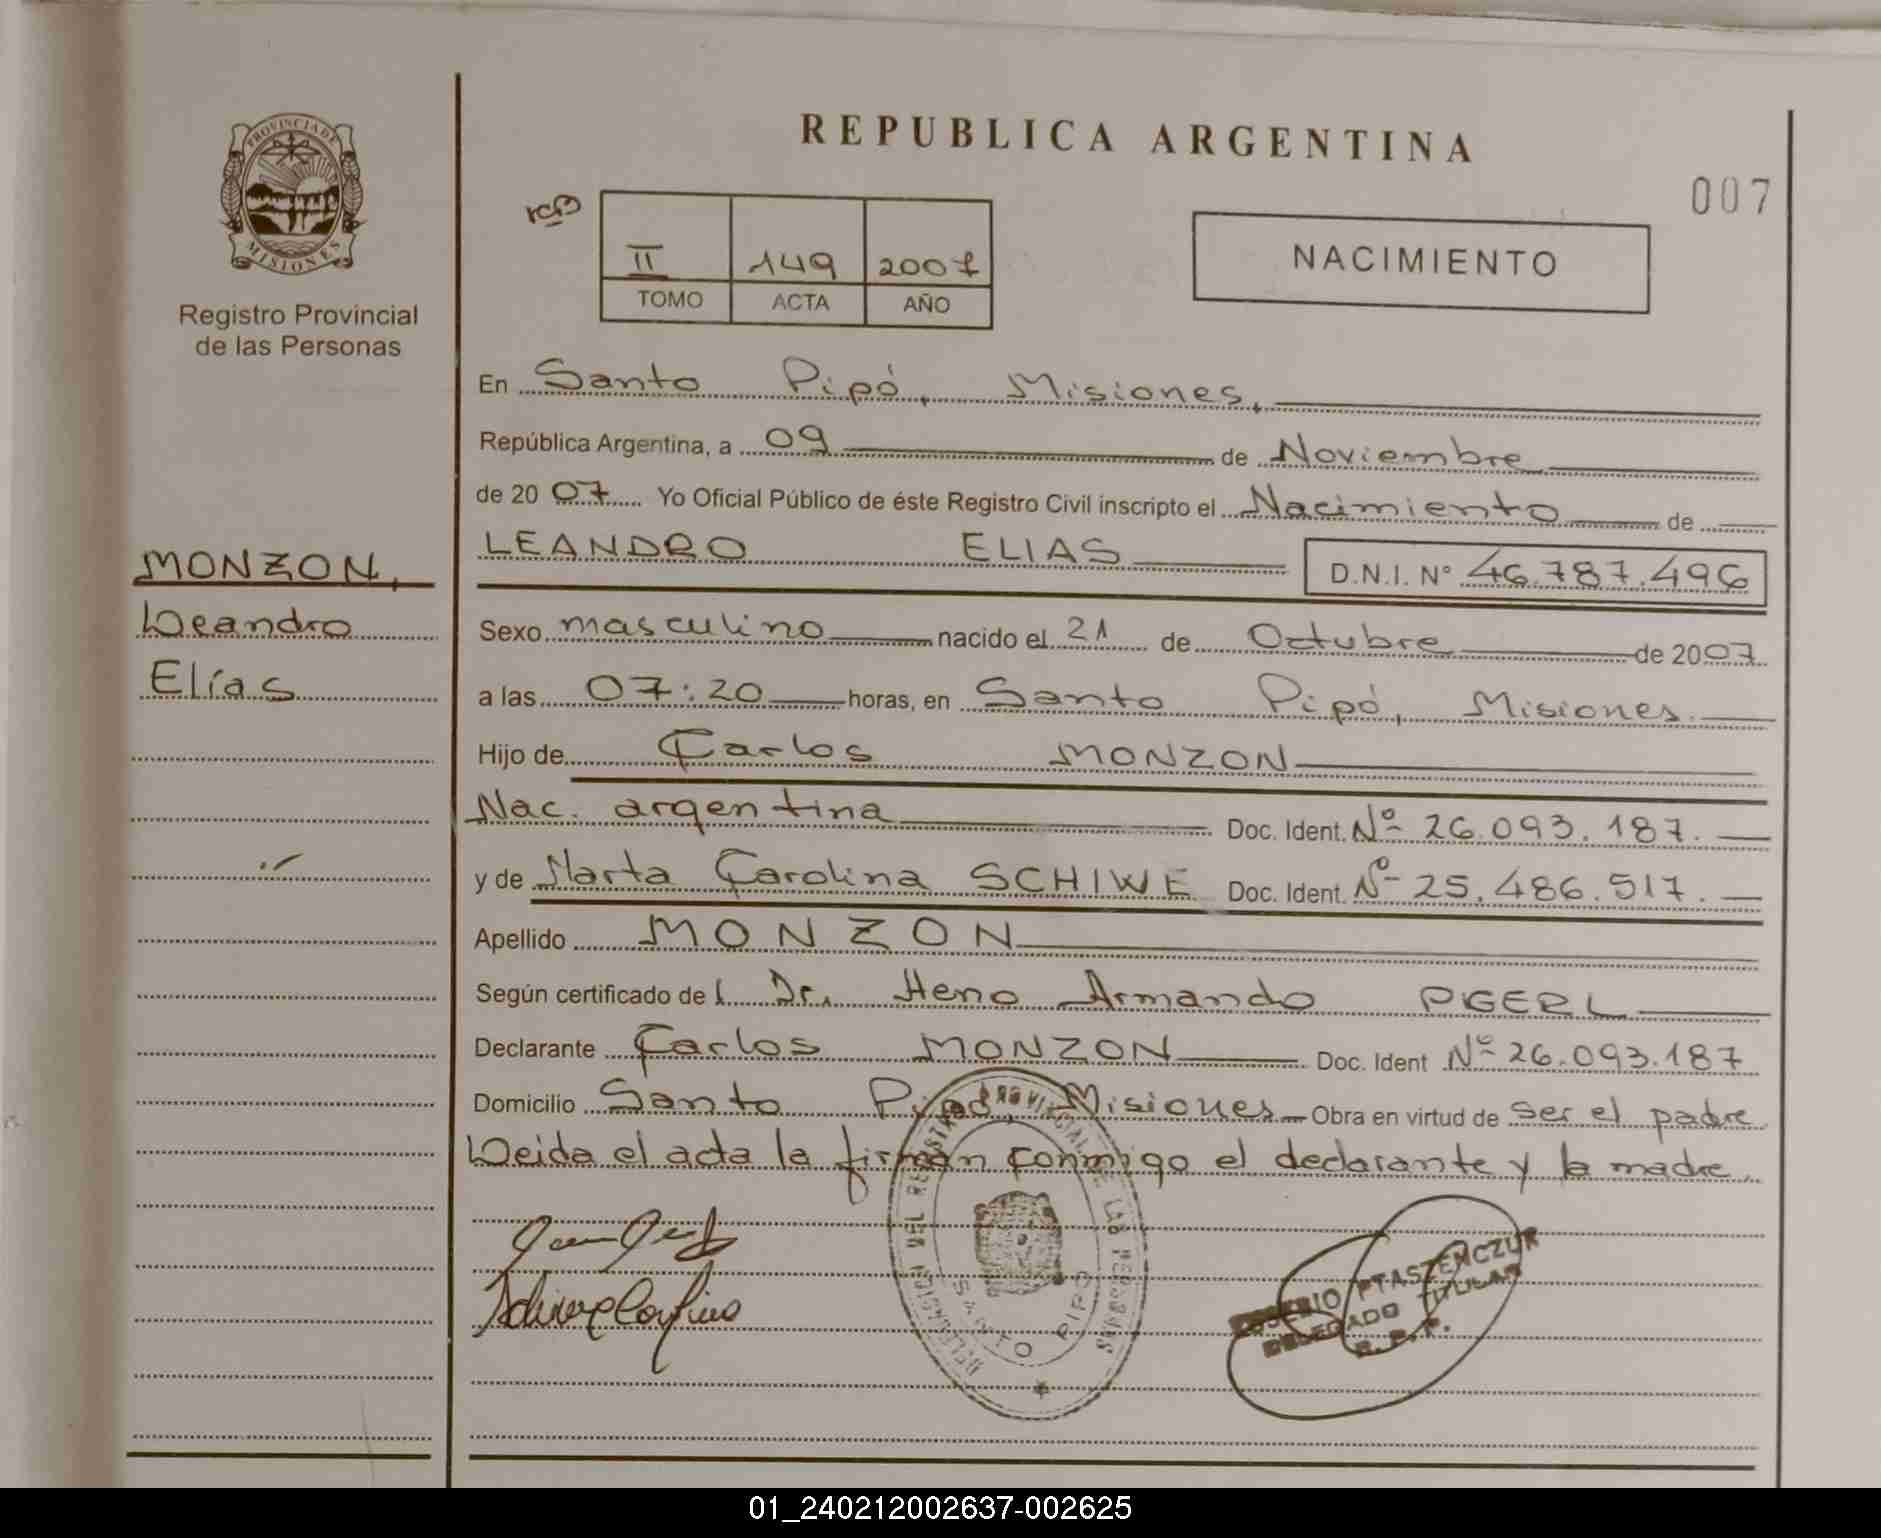 PROVINCIA DE
MISIONES
Registro Provincial
de las Personas
MONZON,
Leandro
Elías
REPUBLICA ARGENTINA
007
II 149 2007
TOMO ACTA AÑO
NACIMIENTO
En Santo Pipó, Misiones,
República Argentina, a 09 de Noviembre
de 2007 Yo Oficial Público de éste Registro Civil inscripto el Nacimiento de
LEANDRO ELIAS D.N.I. N° 46.787.496
Sexo masculino nacido el 21 de Octubre de 2007
a las 07:20 horas, en Santo Pipó, Misiones.
Hijo de Carlos MONZON
Nac. argentina Doc. Ident. Nº 26.093.187.
y de Marta Carolina SCHIWE Doc. Ident. Nº 25.486.517.
Apellido MONZON
Según certificado del Dr. Heno Armando PGERL
Declarante Carlos MONZON Doc. Ident Nº 26.093.187
Domicilio Santo Pipó, Misiones Obra en virtud de ser el padre
Leida el acta la firman conmigo el declarante y la madre.
DELEGACION DEL REGISTRO PROVINCIAL DE LAS PERSONAS
SANTO PIPO
PTASZENCZUK
DELEGADO TITULAR
R. P. P.
01_240212002637-002625